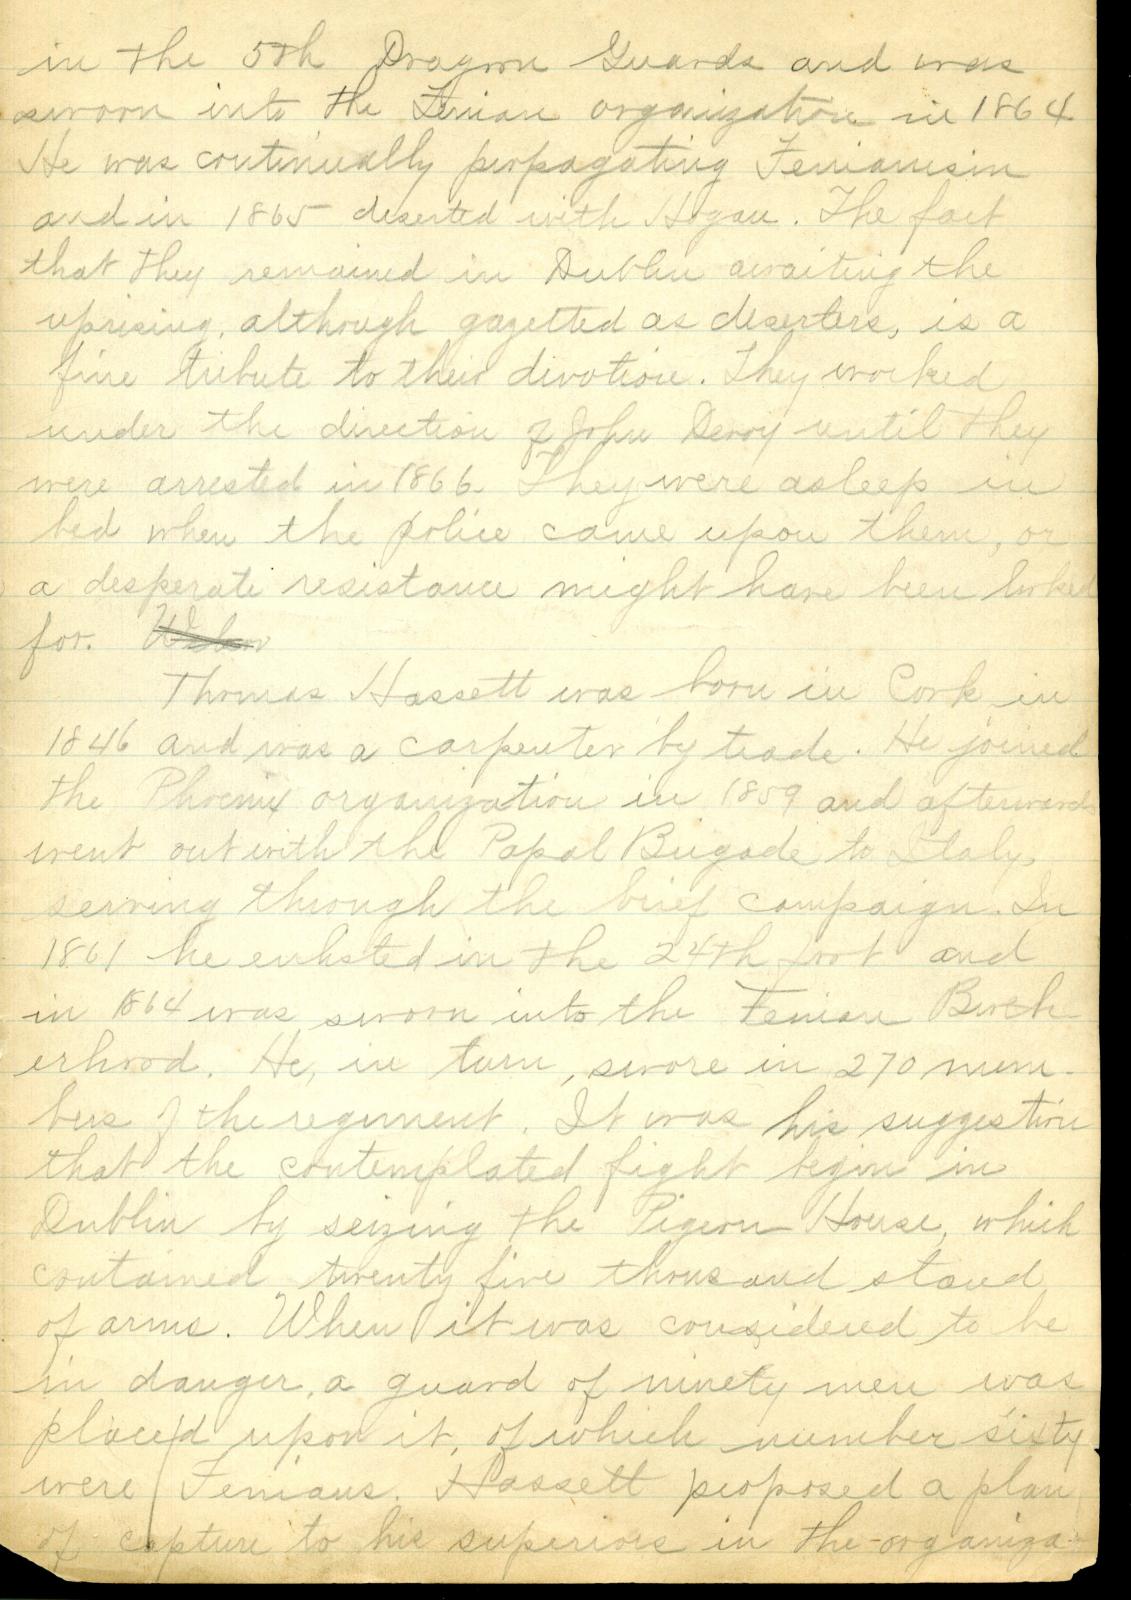 in the 5th Dragoon Guards and was
sworn into the Fenian organization in 1864
He was continually propagating Fenianism
and in 1865 deserted with Hogan. The fact
that they remained in Dublin awaiting the
uprising, although gazetted as deserters, is a
fine tribute to their devotion. They worked
under the direction of John Devoy until they
were arrested in 1866. They were asleep in
bed when the police came upon them, or
a desperate resistance might have been looked
for.
Thomas Hassett was born in Cork in
1846 and was a carpenter by trade. He joined
the Phoenix organization in 1859 and afterwards
went out with the Papal Brigade to Italy,
serving through the brief campaign. In
1861 he enlisted in the 24th foot and
in 1864 was sworn into the Fenian Broth
erhood. He, in turn, swore in 270 mem-
bers of the regiment. It was his suggestion
that the contemplated fight begin in
Dublin by seizing the Pigeon House, which
contained twenty five thousand stand
of arms. When it was considered to be
in danger, a guard of ninety men was
placed upon it, of which number sixty
were Fenians. Hassett proposed a plan
of capture to his superiors in the organiza-